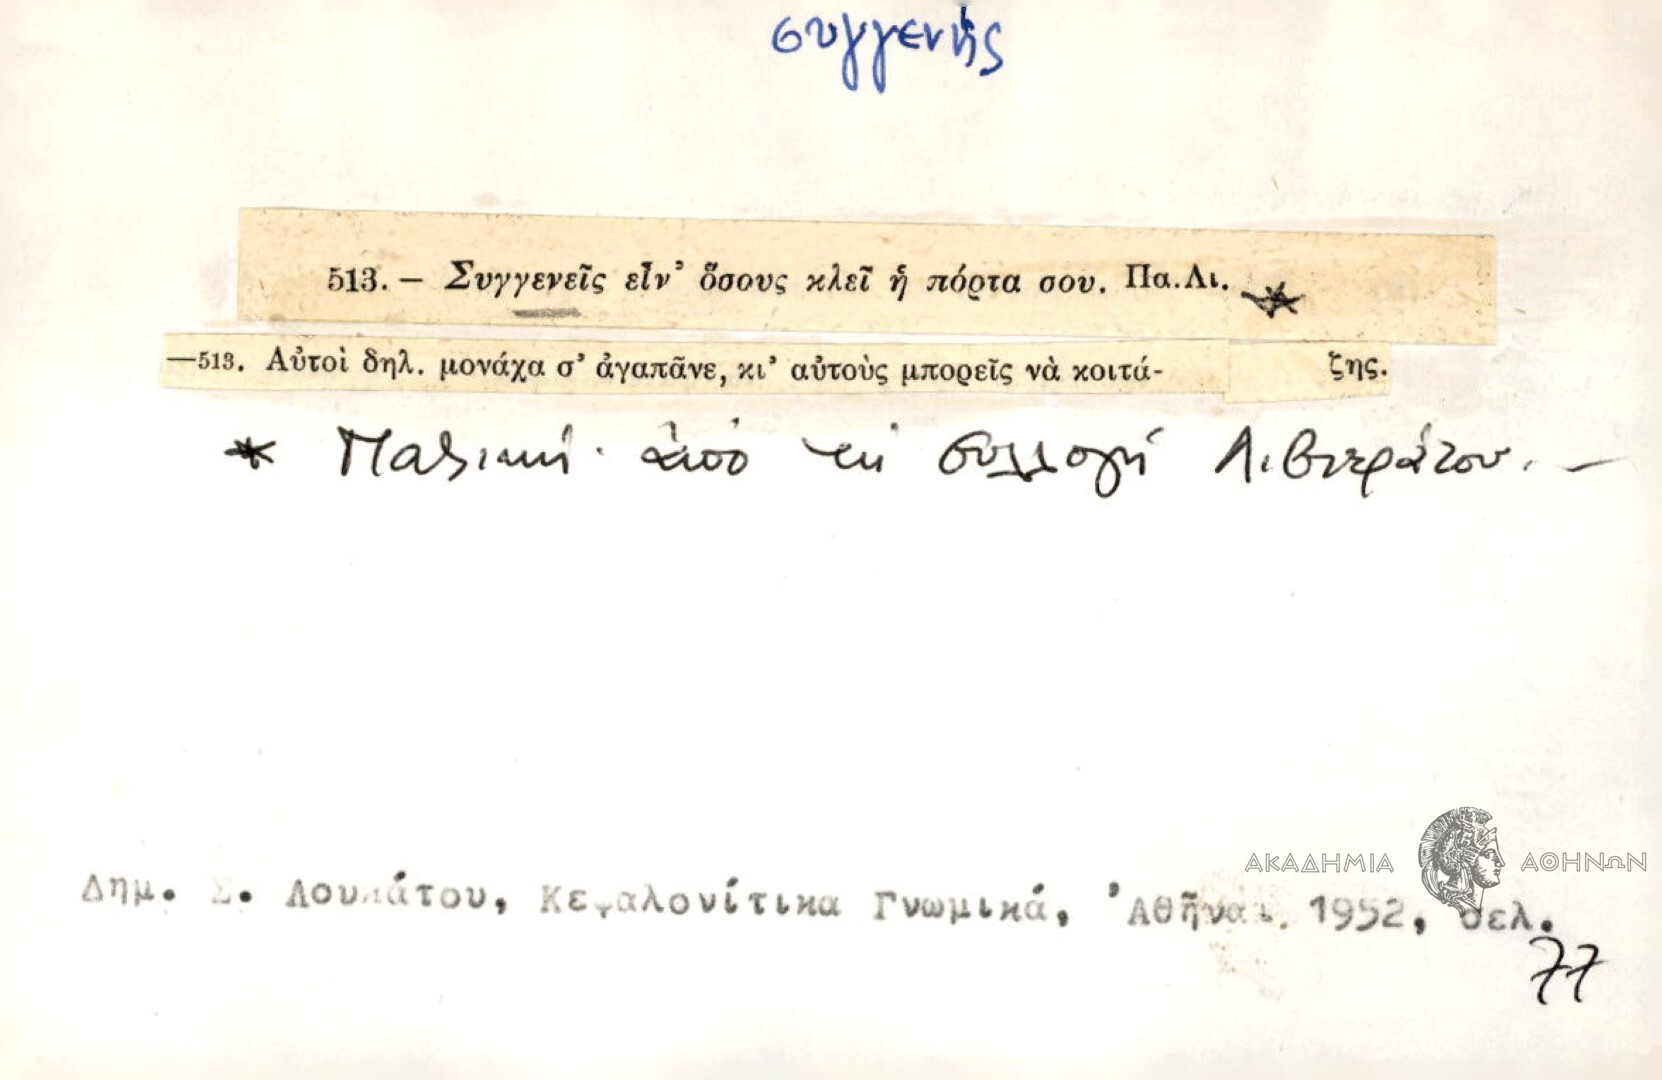 συγγενής
513. — Συγγενεῖς εἶν' ὅσους κλεῖ ἡ πόρτα σου. Πα.Λι. *
—513. Αὐτοὶ δηλ. μονάχα σ' ἀγαπᾶνε, κι' αὐτοὺς μπορεῖς νὰ κοιτά- ζης.
* Παξινή· ἀπὸ τὴ συλλογή Λιβιεράτου. —
ΑΚΑΔΗΜΙΑ ΑΘΗΝΩΝ
Δημ. Σ. Λουκάτου, Κεφαλονίτικα Γνωμικά, Ἀθῆναι 1952, σελ.
77